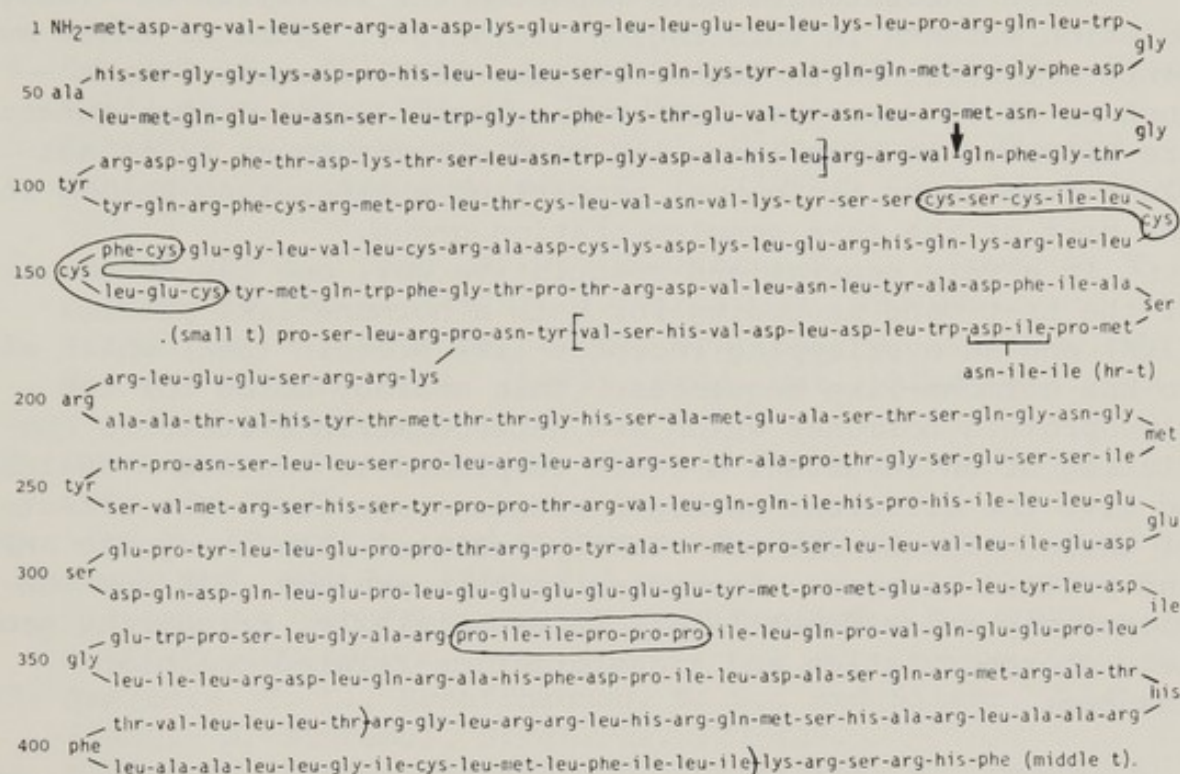 1 NH2-met-asp-arg-val-leu-ser-arg-ala-asp-lys-glu-arg-leu-leu-glu-leu-leu-lys-leu-pro-arg-gln-leu-trp
gly
his-ser-gly-gly-lys-asp-pro-his-leu-leu-leu-ser-gln-gln-lys-tyr-ala-gln-gln-met-arg-gly-phe-asp
50 ala
leu-met-gln-glu-leu-asn-ser-leu-trp-gly-thr-phe-lys-thr-glu-val-tyr-asn-leu-arg-met-asn-leu-gly
gly
arg-asp-gly-phe-thr-asp-lys-thr-ser-leu-asn-trp-gly-asp-ala-his-leu]arg-arg-val-gln-phe-gly-thr
100 tyr
tyr-gln-arg-phe-cys-arg-met-pro-leu-thr-cys-leu-val-asn-val-lys-tyr-ser-ser cys-ser-cys-ile-leu
cys
phe-cys glu-gly-leu-val-leu-cys-arg-ala-asp-cys-lys-asp-lys-leu-glu-arg-his-gln-lys-arg-leu-leu
150 cys
leu-glu-cys tyr-met-gln-trp-phe-gly-thr-pro-thr-arg-asp-val-leu-asn-leu-tyr-ala-asp-phe-ile-ala
ser
.(small t) pro-ser-leu-arg-pro-asn-tyr[val-ser-his-val-asp-leu-asp-leu-trp-asp-ile-pro-met
asn-ile-ile (hr-t)
arg-leu-glu-glu-ser-arg-arg-lys
200 arg
ala-ala-thr-val-his-tyr-thr-met-thr-thr-gly-his-ser-ala-met-glu-ala-ser-thr-ser-gln-gly-asn-gly
met
thr-pro-asn-ser-leu-leu-ser-pro-leu-arg-leu-arg-arg-ser-thr-ala-pro-thr-gly-ser-glu-ser-ser-ile
250 tyr
ser-val-met-arg-ser-his-ser-tyr-pro-pro-thr-arg-val-leu-gln-gln-ile-his-pro-his-ile-leu-leu-glu
glu
glu-pro-tyr-leu-leu-glu-pro-pro-thr-arg-pro-tyr-ala-thr-met-pro-ser-leu-leu-val-leu-ile-glu-asp
300 ser
asp-gln-asp-gln-leu-glu-pro-leu-glu-glu-glu-glu-glu-glu-tyr-met-pro-met-glu-asp-leu-tyr-leu-asp
ile
glu-trp-pro-ser-leu-gly-ala-arg pro-ile-ile-pro-pro-pro ile-leu-gln-pro-val-gln-glu-glu-pro-leu
350 gly
leu-ile-leu-arg-asp-leu-gln-arg-ala-his-phe-asp-pro-ile-leu-asp-ala-ser-gln-arg-met-arg-ala-thr
his
thr-val-leu-leu-leu-thr)arg-gly-leu-arg-arg-leu-his-arg-gln-met-ser-his-ala-arg-leu-ala-ala-arg
400 phe
leu-ala-ala-leu-leu-gly-ile-cys-leu-met-leu-phe-ile-leu-ile)lys-arg-ser-arg-his-phe (middle t).